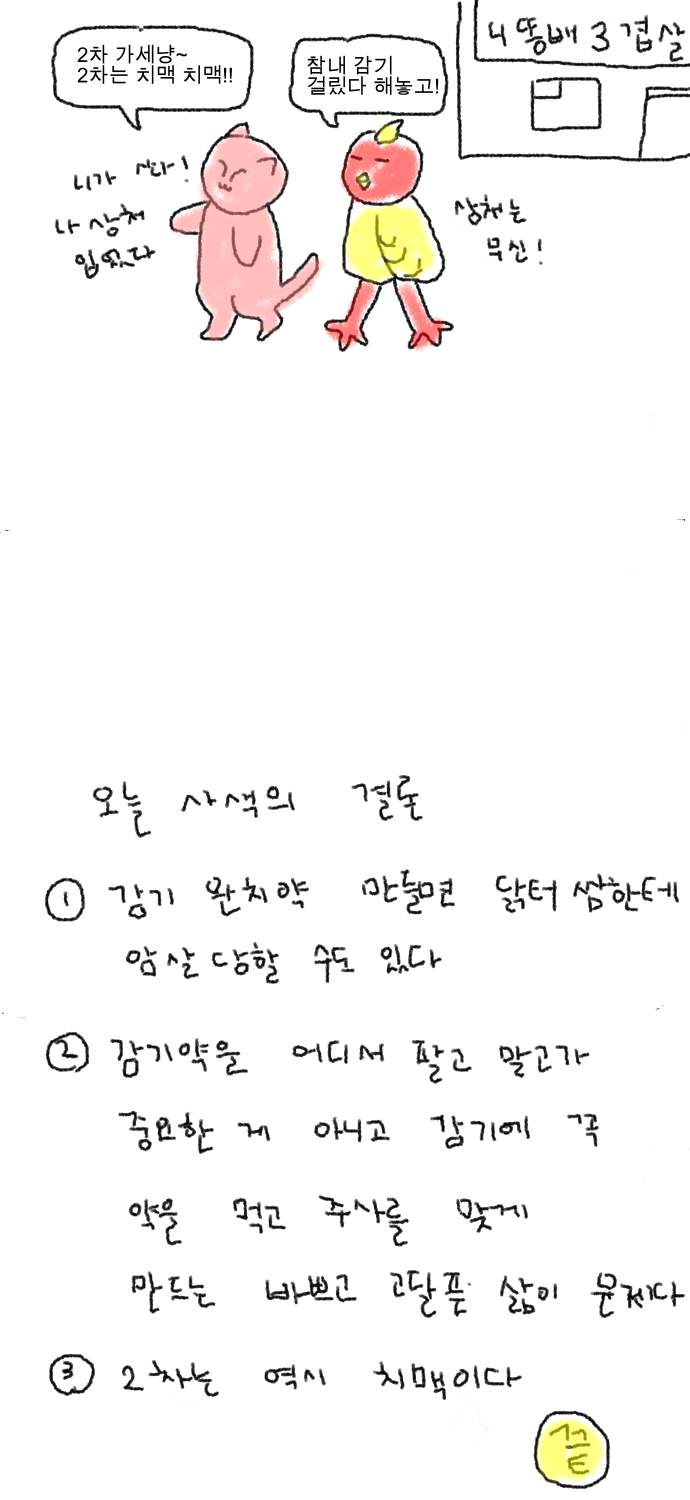 ㅓ똥배 3겹살
2차 가세냥~
2차는 치맥 치맥!!
참내 감기
걸렸다 해놓고!
니가 쏴!
나 상처
입었다
상처는
무신!
오늘 사색의 결론
① 감기 완치약 만들면 닭터 쌤한테
암살 당할 수도 있다
② 감기약을 어디서 팔고 말고가
중요한 게 아니고 감기에 꼭
약을 먹고 주사를 맞게
만드는 바쁘고 고달픈 삶이 문제다
③ 2차는 역시 치맥이다
끝